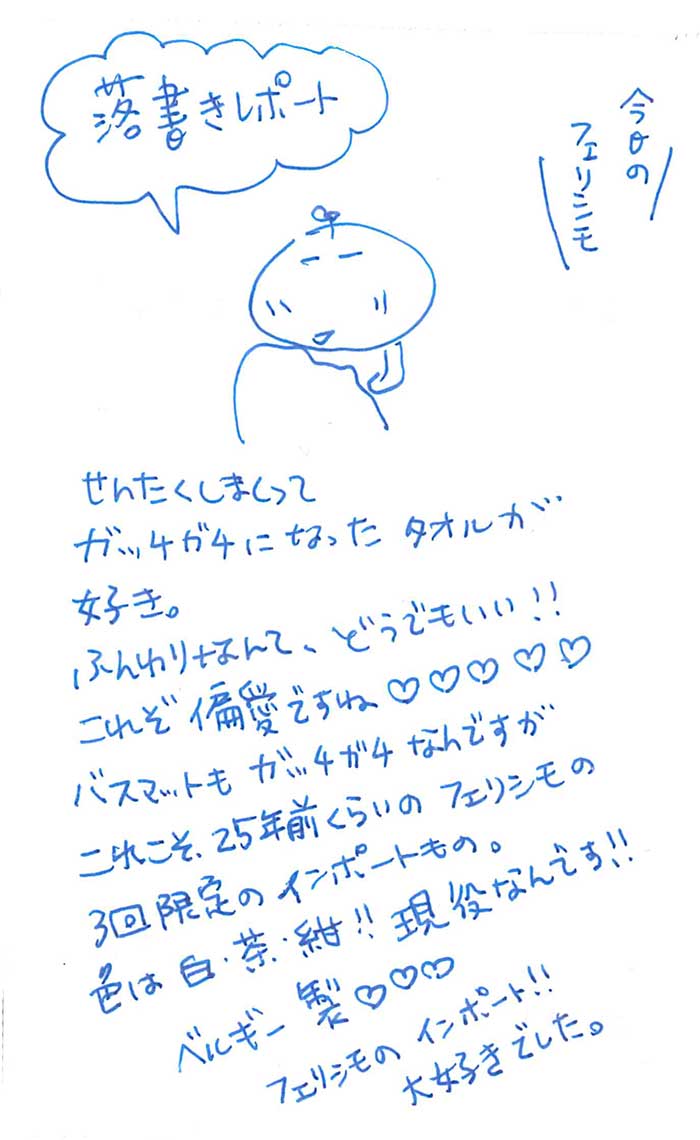 落書きレポート
今日の
フェリシモ
せんたくしまくって
ガッチガチになったタオルが
好き。
ふんわりなんて、どうでもいい!!
これぞ偏愛ですね♡♡♡♡♡
バスマットもガッチガチなんですが
これこそ、25年前くらいのフェリシモの
3回限定のインポートもの。
色は白・茶・紺!!現役なんです!!
ベルギー製♡♡♡
フェリシモのインポート!!
大好きでした。